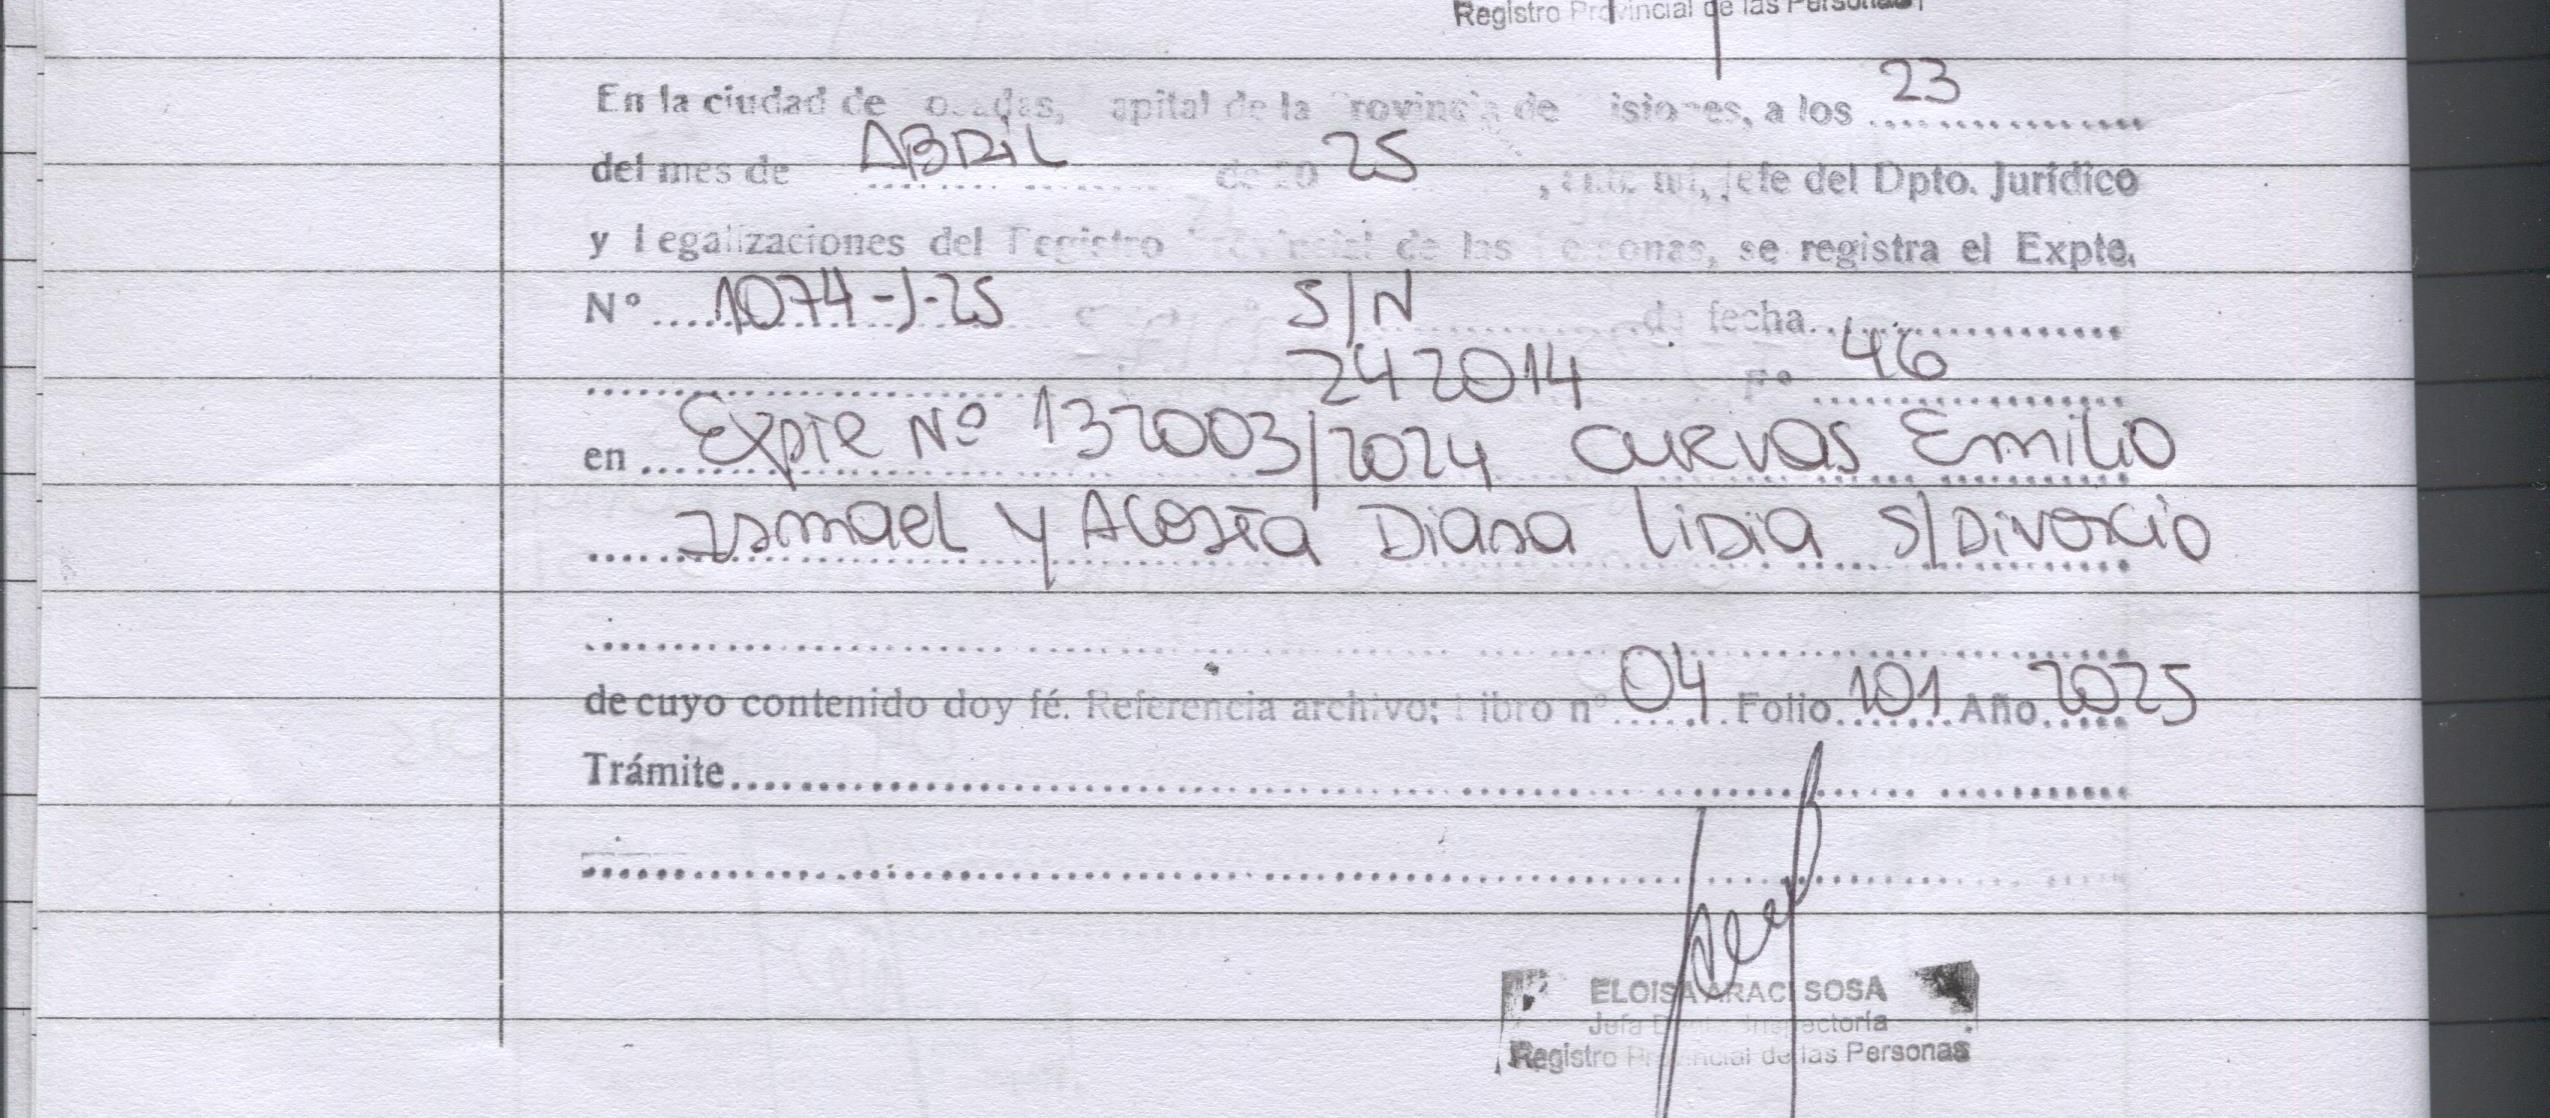 Registro Provincial de las Personas
En la ciudad de Posadas, Capital de la Provincia de Misiones, a los 23
del mes de ABRIL de 20 25, ante mí, Jefe del Dpto. Jurídico
y Legalizaciones del Registro Provincial de las Personas, se registra el Expte.
Nº 1074-J-25 S/N de fecha
242014 Fº 46
en Expte Nº 132003/2024 Cuevas Emilio
Ismael y Acosta Diana Lidia S/Divorcio
de cuyo contenido doy fé. Referencia archivo: Libro nº 04 Folio 101 Año 2025
Trámite
ELOISA ARACI SOSA
Jefa Dpto. Inspectoría
Registro Provincial de las Personas